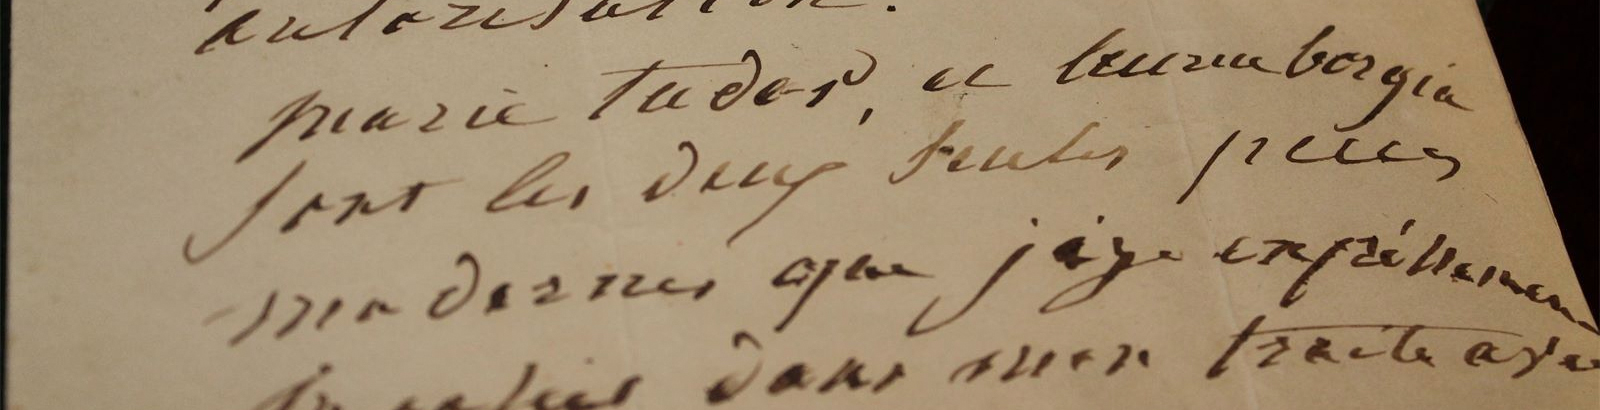 autorisation.
marie tudor, et lucrece borgia
sont les deux seules pieces
modernes que j'aye expressément
dans mon traité avec